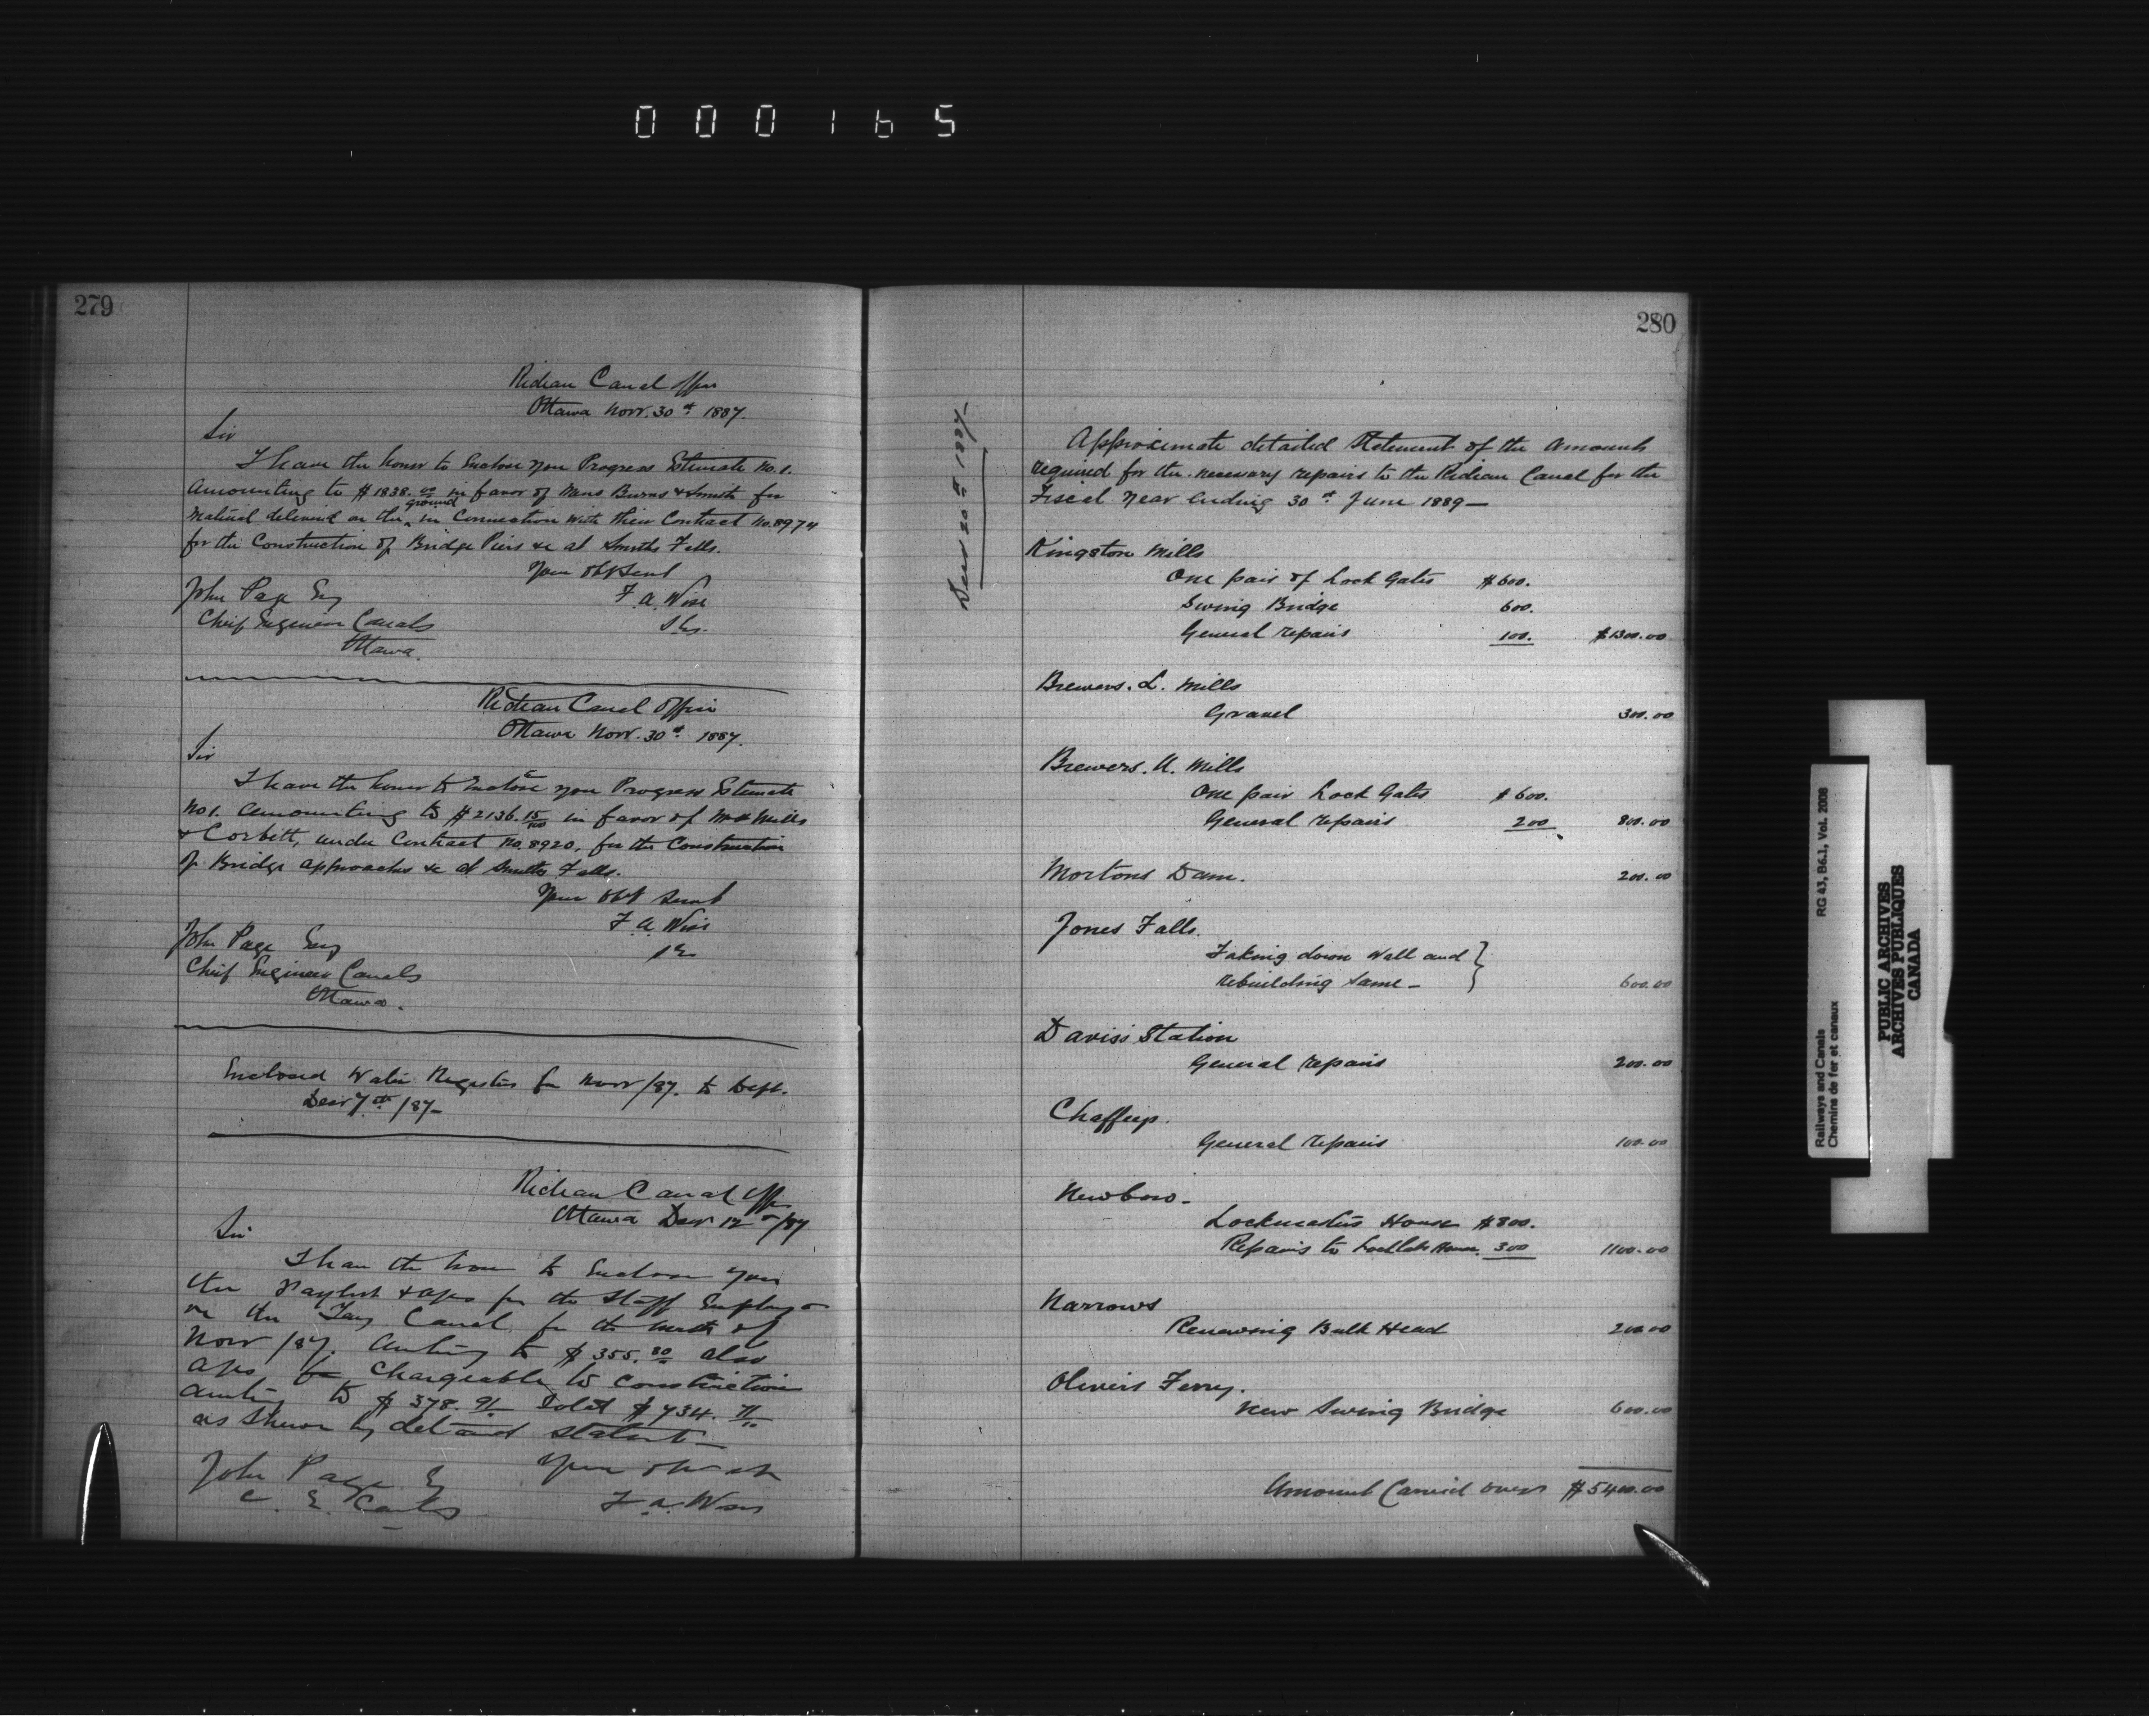 000165
279
Rideau Canal Office
Ottawa Novr. 30th 1887.
Sir
I have the honor to Enclose you Progress Estimate No. 1.
amounting to $1838.00 in favor of Mess Burns & Smith for
material delivered on the ground in Connection with their Contract No. 8974
for the Construction of Bridge Piers &c at Smiths Falls.
Your Obt Servt
John Page Esq
F. A. Wise
Cheif Engineer Canals
Ottawa.
Rideau Canal Office
Ottawa Novr. 30th 1887.
Sir
I have the honor to Enclose you Progress Estimate
No 1. amounting to $2136.15/100 in favor of Mess Mills
& Corbitt, under Contract No. 8920, for the Construction
of Bridge approaches &c at Smiths Falls.
Your Obt Servt
F. A. Wise
John Page Esq
Cheif Engineer Canals
Ottawa.
Enclosed Water Registers for Novr /87. to Dept.
Decr 7th /87 —
Rideau Canal Office
Ottawa Decr 12th /87
Sir
I have the honor to Enclose you
the Paylist & a/cs for the Staff Employed
on the Tay Canal, for the month of
Novr /87. amting to $355.80 also
a/cs chargeable to Construction
amting to $378.91 Total $734.71
as shewn by detailed statemt —
John Page Esq
C. E. Canals
F. A. Wise
280
Decr 20th 1887 —
Approximate detailed Statement of the Amounts
required for the necessary repairs to the Rideau Canal for the
Fiscal Year Ending 30th June 1889 —
Kingston Mills
One pair of Lock Gates $600.
Swing Bridge 600.
General repairs 100. $1300.00
Brewers. L. Mills
Gravel 300.00
Brewers. U. Mills
One pair Lock Gates $600.
General repairs 200 800.00
Mortons Dam. 200.00
Jones Falls.
Taking down Wall and
rebuilding same — 600.00
Daviss Station
General repairs 200.00
Chaffeys.
General repairs 100.00
Newboro. —
Lockmasters House $800.
Repairs to House. 300 1100.00
Narrows
Renewing Bulk Head 200.00
Olivers Ferry.
New Swing Bridge 600.00
Amount Carried over $5400.00
Railways and Canals
Chemins de fer et canaux
RG 43, B6.1, Vol. 2008
PUBLIC ARCHIVES
ARCHIVES PUBLIQUES
CANADA